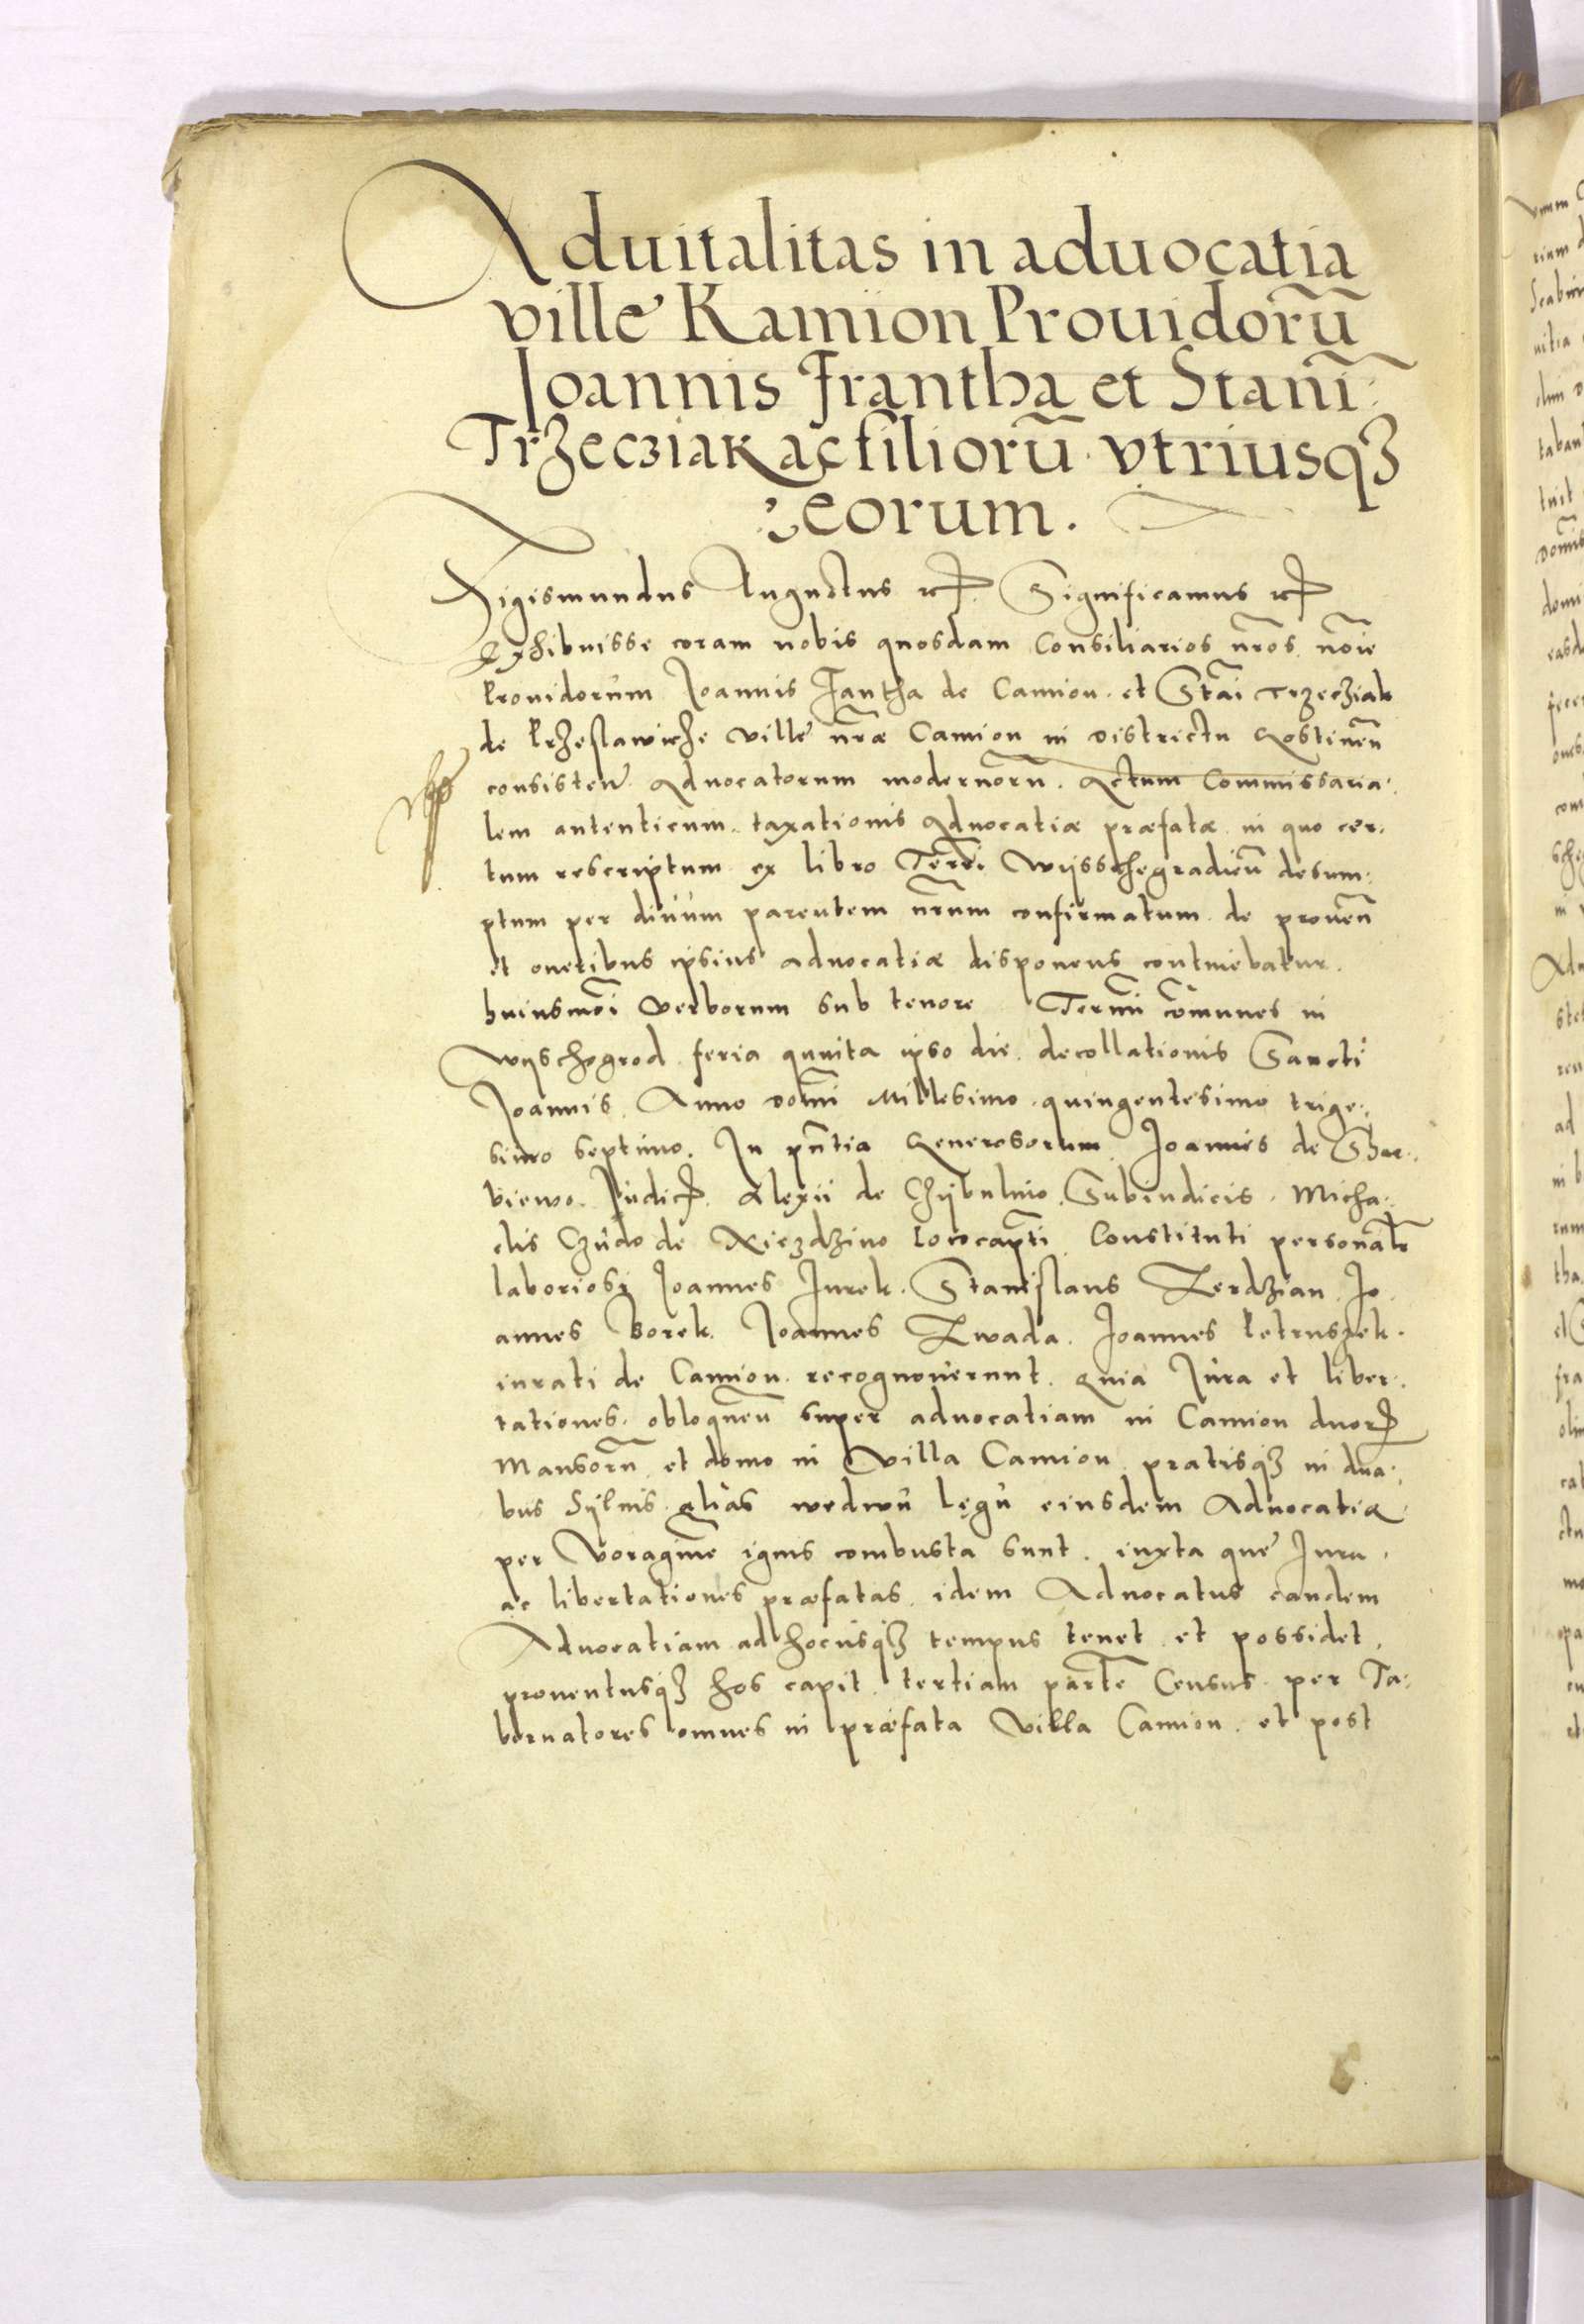 Aduitalitas in aduocatia
ville Kamion Prouidorū
Joannis Frantha et Stanī
Trzecziak ac filiorū vtriusqȝ
eorum.
Sigismundus Augustus etc. Significamus etc.
Exhibuisse coram nobis quosdam Consiliarios nr̄os nōie
Prouidorum Joannis Fantha de Camion et Stāi Trzecziak
de Przeslawicze ville nr̄æ Camion in districtu Gostinen̄
consisten̄ Aduocatorum modernorū. Actum Commissaria-
lem autenticum taxationis Aduocatiæ præfatæ in quo cer-
tum rescriptum ex libro Terrī Wijsschegradien̄ desum-
ptum per diuum parentem nr̄um confirmatum de prouen̄
et oneribus ipsius aduocatiæ disponens continebatur.
huiusmōi verborum sub tenore Termī cōmunes in
Wijschegrod feria quinta ipso die decollationis Sancti
Joannis Anno domī Millesimo quingentesimo trige-
simo septimo. In pn̄tia Generosorum Joannis de
biewo Judic. Alexii de Chijbulino Subiudicis. Micha-
elis Czudo de Kieȝdzino locōcaptī Constituti personalr̄
laboriosi Joannes Jurek. Stanislaus Zerdzian Jo
annes Borek. Joannes Zwada. Joannes Petruszek.
iurati de Camion recognouerunt. Quia Jura et liber-
tationes obloquen̄ super aduocatiam in Camion duor
Mansorū et domo in villa Camion pratisqȝ in dua-
bus Sylius alias wedwu lęgu eiusdem Aduocatiæ
per voraginē ignis combusta sunt. iuxta que Jura
ac libertationes præfatas idem Aduocatus eandem
Aduocatiam ad hocusqȝ tempus tenet et possidet.
prouentusqȝ hos capit tertiam partē Census per Ta-
bernatores omnes in præfata villa Camion. et post